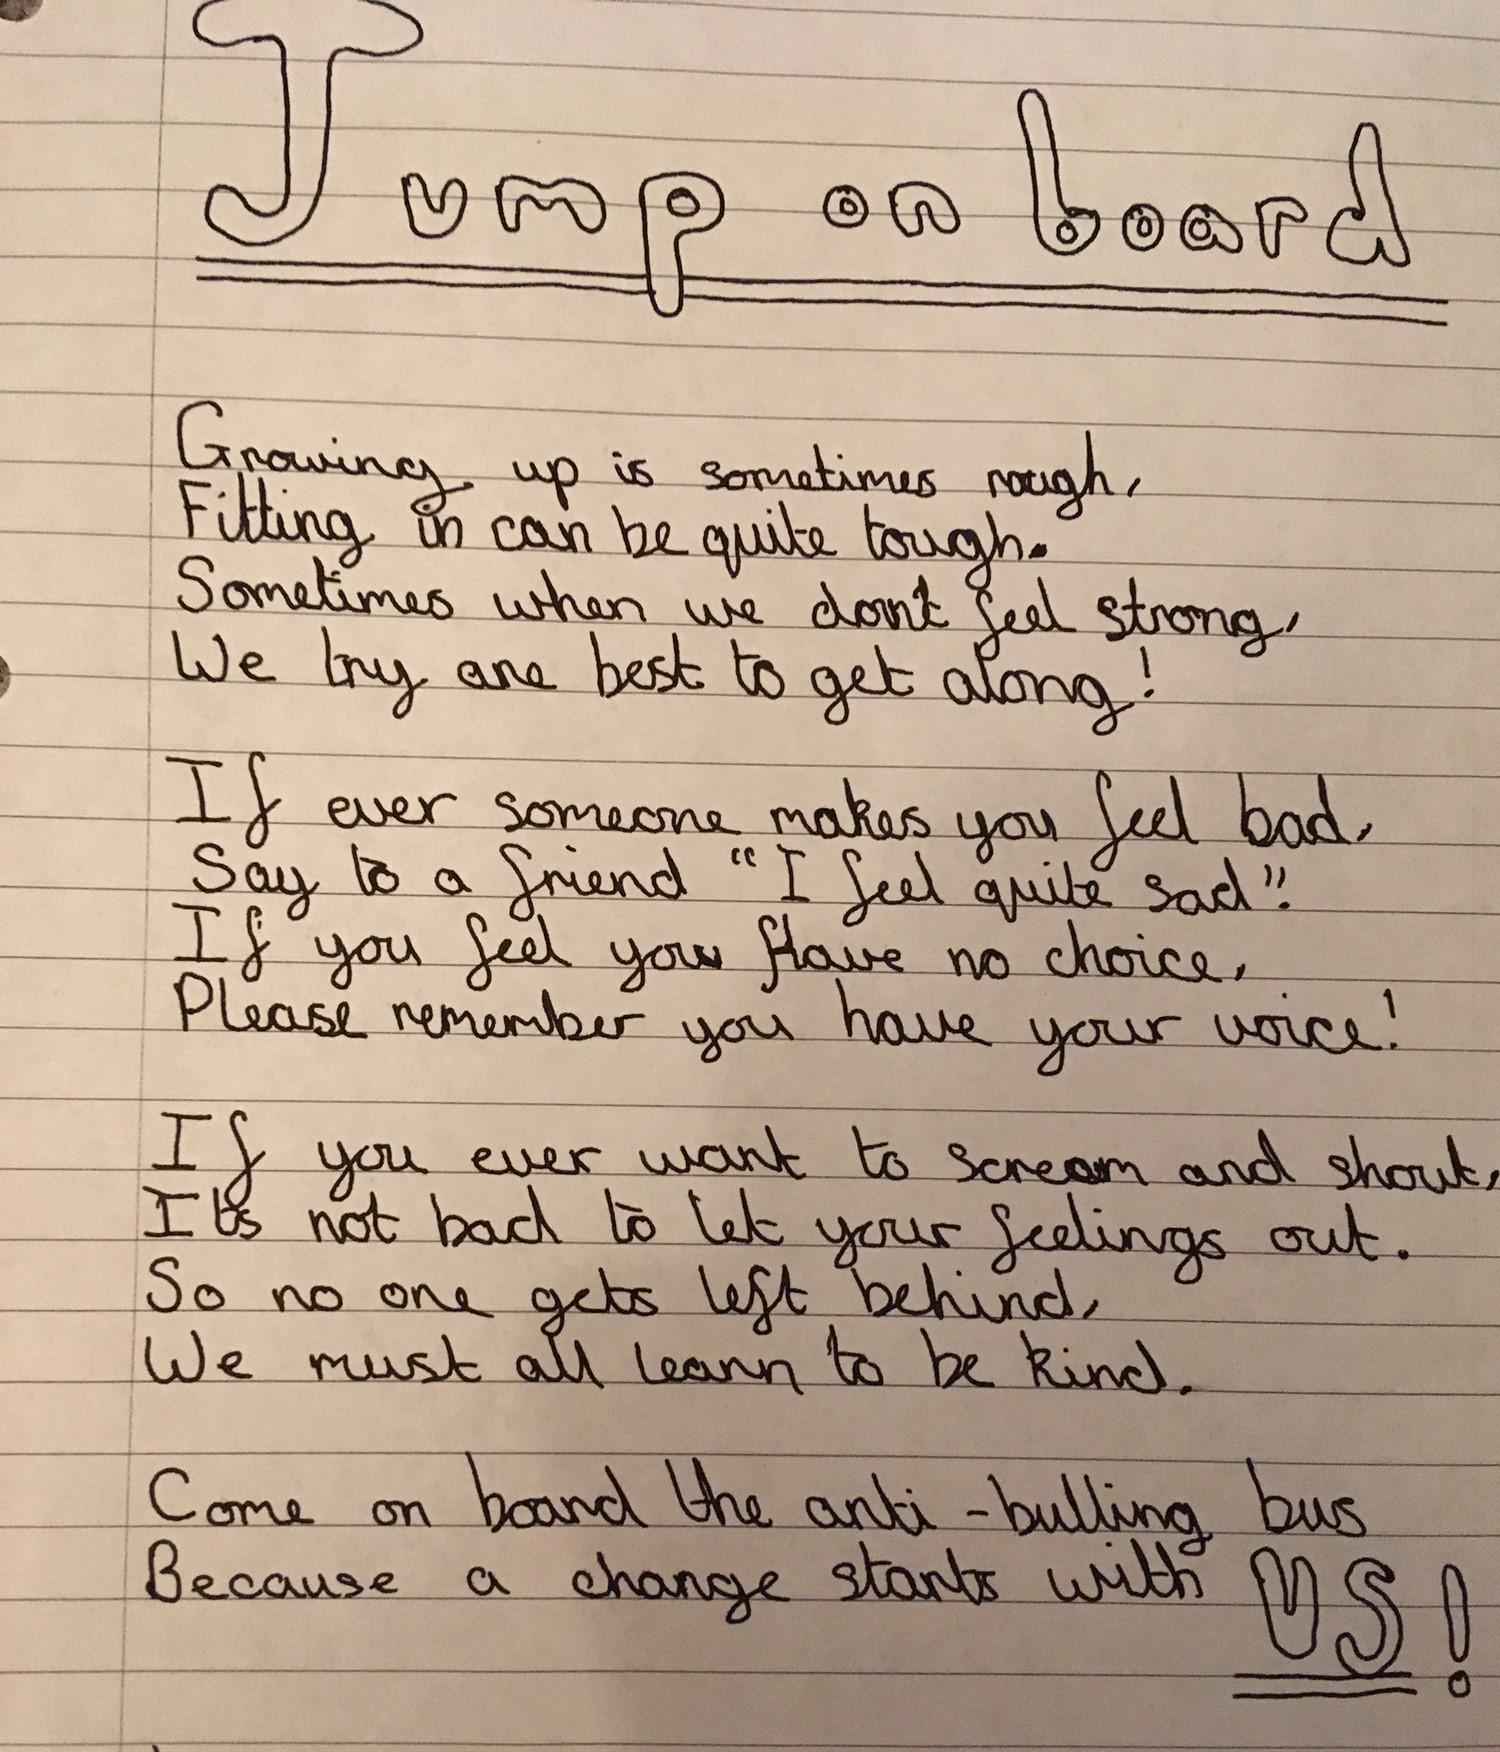 Jump on board
Growing up is sometimes rough,
Fitting in can be quite tough.
Sometimes when we don't feel strong,
We try are best to get along!
If ever someone makes you feel bad,
Say to a friend "I feel quite sad".
If you feel you have no choice,
Please remember you have your voice!
If you ever want to scream and shout,
Its not bad to let your feelings out.
So no one gets left behind,
We must all learn to be kind.
Come on board the anti-bulling bus
Because a change starts with US!